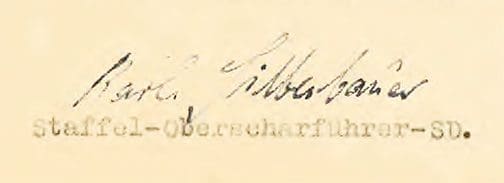 Karl Silberbauer
Staffel-Oberscharführer-SD.